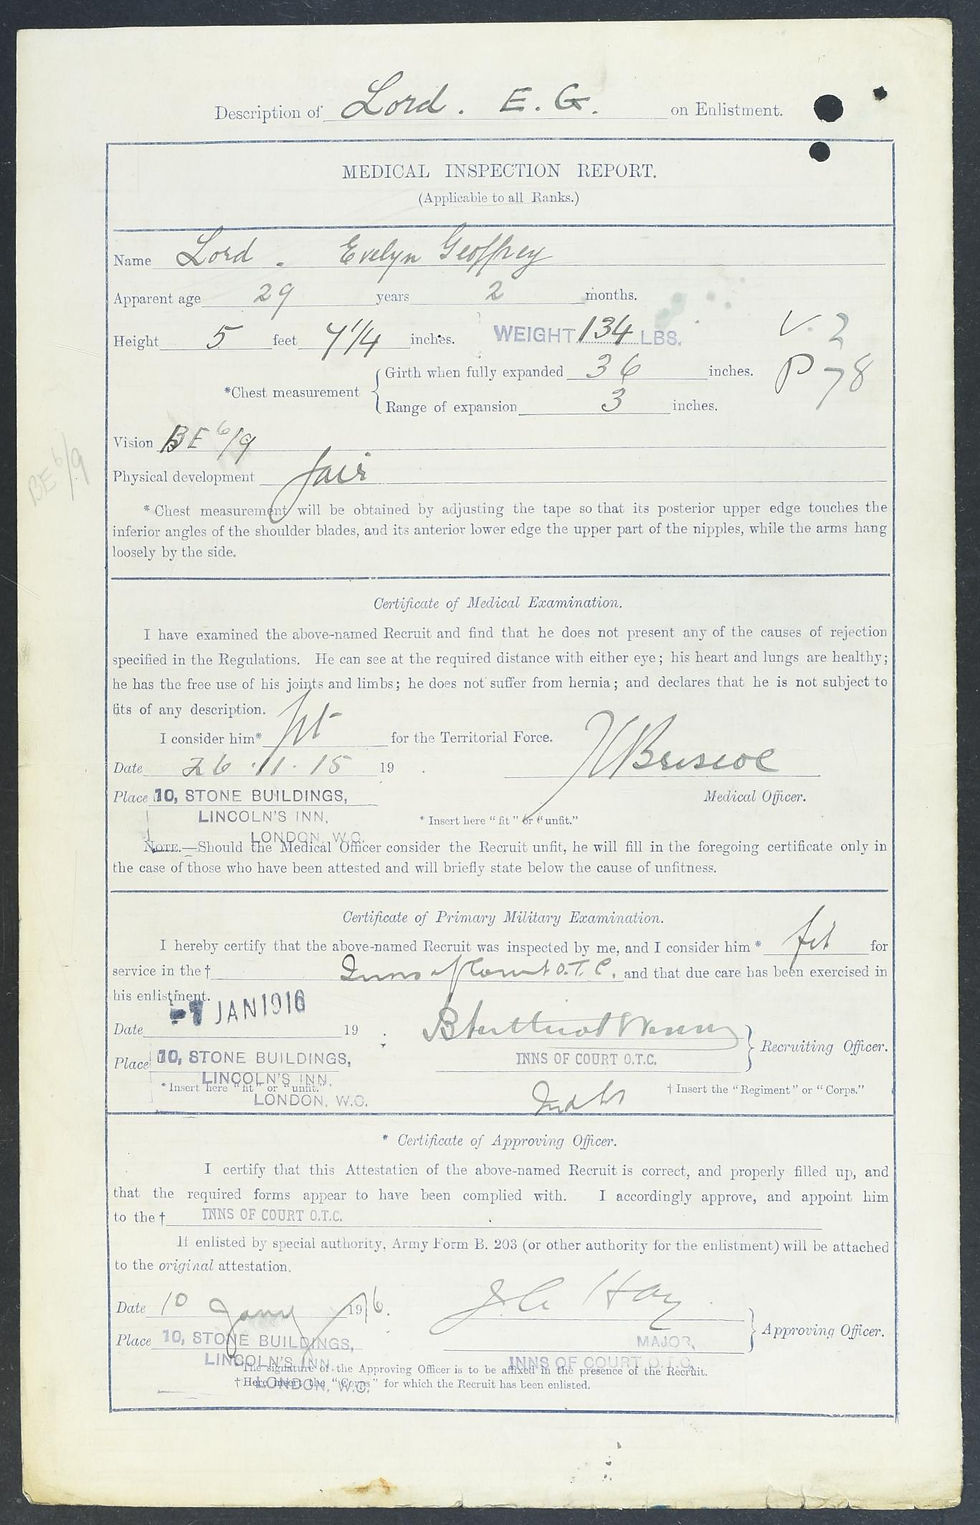 Description of Lord. E. G. on Enlistment.
MEDICAL INSPECTION REPORT.
(Applicable to all Ranks.)
Name Lord . Evelyn Geoffrey
Apparent age 29 years 2 months.
Height 5 feet 7 1/4 inches. WEIGHT 134 LBS. V. 2
Girth when fully expanded 36 inches. P 78
*Chest measurement
Range of expansion 3 inches.
Vision BE 6/9
BE 6/9
Physical development fair
* Chest measurement will be obtained by adjusting the tape so that its posterior upper edge touches the
inferior angles of the shoulder blades, and its anterior lower edge the upper part of the nipples, while the arms hang
loosely by the side.
Certificate of Medical Examination.
I have examined the above-named Recruit and find that he does not present any of the causes of rejection
specified in the Regulations. He can see at the required distance with either eye; his heart and lungs are healthy;
he has the free use of his joints and limbs; he does not suffer from hernia; and declares that he is not subject to
fits of any description.
I consider him* fit for the Territorial Force.
Date 26.11.15 19 . Briscoe
Place 10, STONE BUILDINGS, Medical Officer.
LINCOLN'S INN, * Insert here "fit" or "unfit."
LONDON, W.C.
NOTE.—Should the Medical Officer consider the Recruit unfit, he will fill in the foregoing certificate only in
the case of those who have been attested and will briefly state below the cause of unfitness.
Certificate of Primary Military Examination.
I hereby certify that the above-named Recruit was inspected by me, and I consider him * fit for
service in the † Inns of Court O.T.C. and that due care has been exercised in
his enlistment.
Date -7 JAN 1916 19 .
Recruiting Officer.
Place 10, STONE BUILDINGS, INNS OF COURT O.T.C.
LINCOLN'S INN,
* Insert here "fit" or "unfit." † Insert the "Regiment" or "Corps."
LONDON, W.C.
* Certificate of Approving Officer.
I certify that this Attestation of the above-named Recruit is correct, and properly filled up, and
that the required forms appear to have been complied with. I accordingly approve, and appoint him
to the † INNS OF COURT O.T.C.
If enlisted by special authority, Army Form B. 203 (or other authority for the enlistment) will be attached
to the original attestation.
Date 10 Jany 1916. Hay
Approving Officer.
Place 10, STONE BUILDINGS, MAJOR,
LINCOLN'S INN, INNS OF COURT O.T.C.
*The signature of the Approving Officer is to be affixed in the presence of the Recruit.
LONDON, W.C.
† Here insert the "Corps" for which the Recruit has been enlisted.